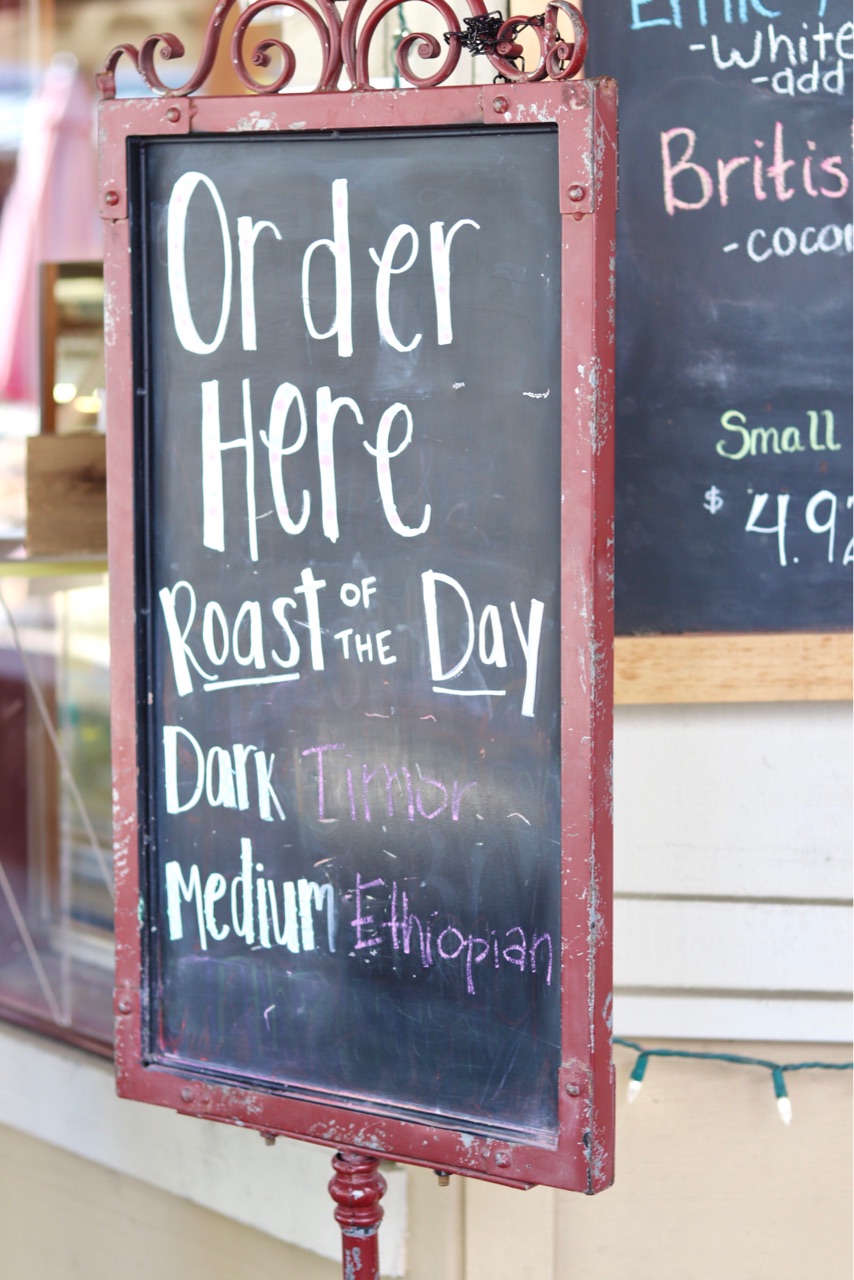 Order
Here
Roast OF THE Day
Dark Timor
Medium Ethiopian
-white
-add
Britis
-coco
Small
$ 4.92